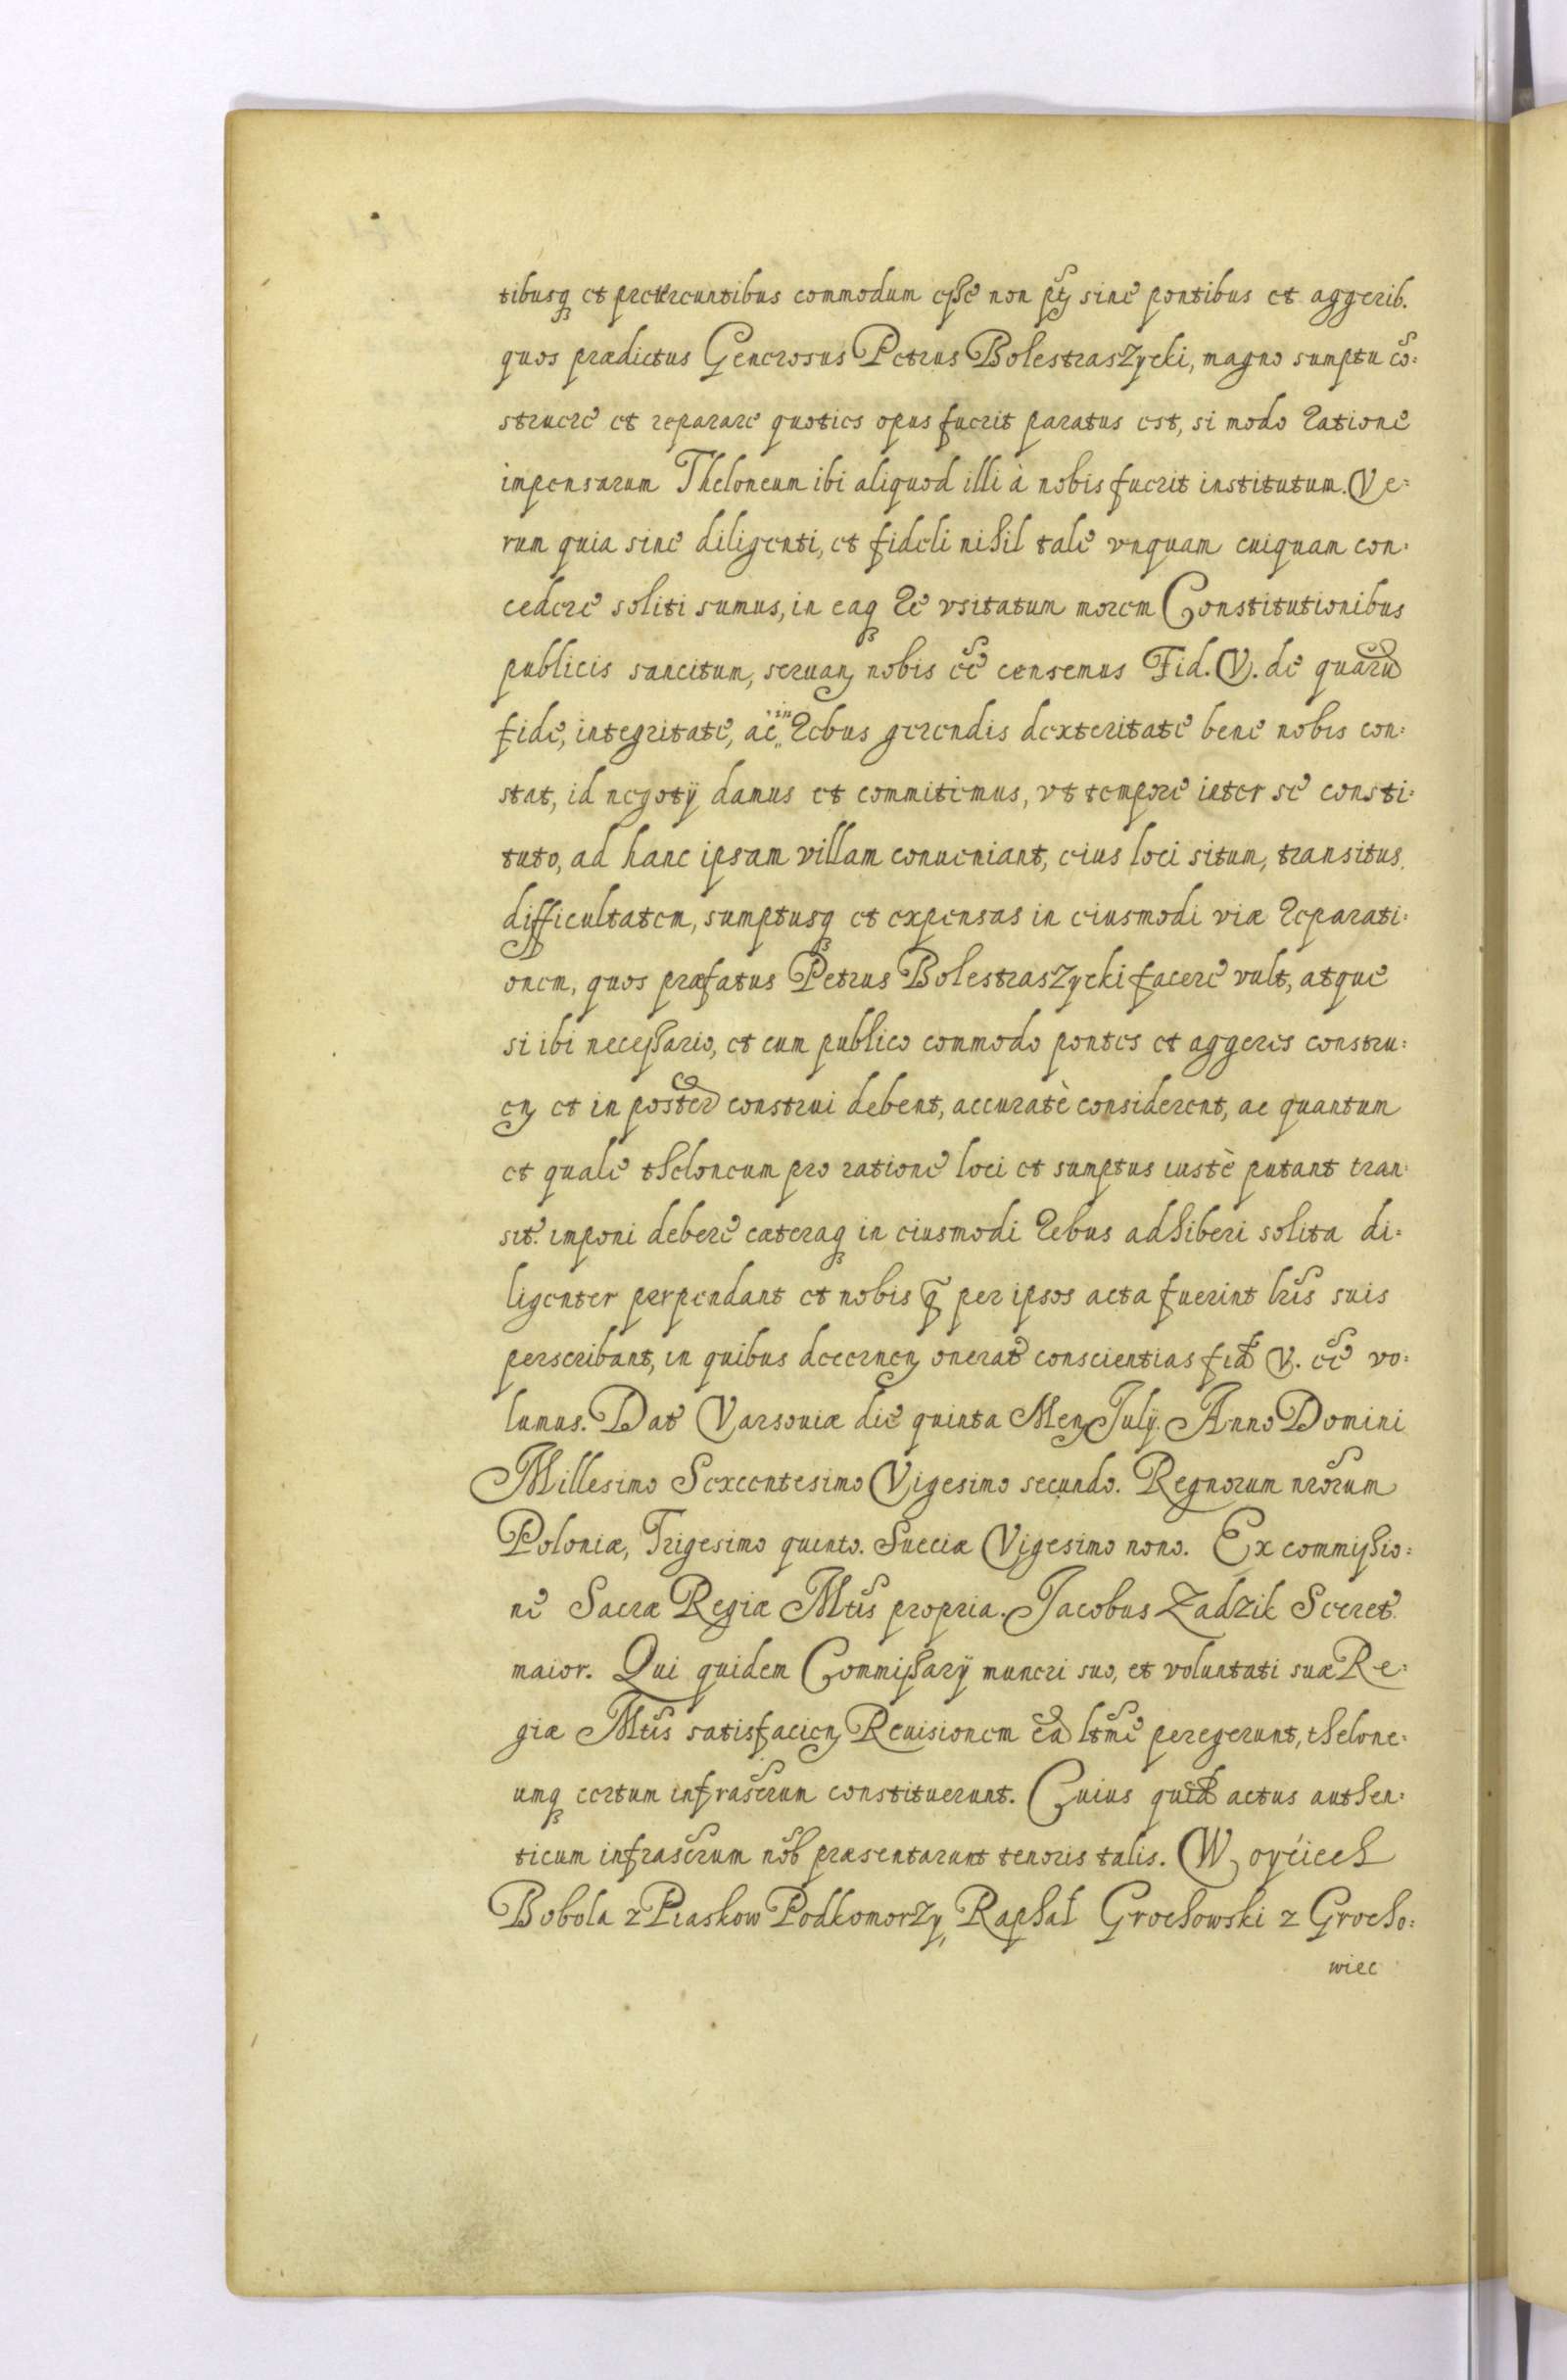 tibusq et prætereuntibus commodum esse non pt̃ sine pontibus et aggerib.
quos prædictus Generosus Petrus Bolestraszycki, magno sumptu cõ:
struere et reparare quoties opus fuerit paratus est, si modo ratione
impensarum Theloneum ibi aliquod illi à nobis fuerit institutum. Ve:
rum quia sine diligenti, et fideli nihil tale vnquam cuiquam con:
cedere soliti sumus, in eaq re vsitatum morem Constitutionibus
publicis sancitum, seruan nobis eẽ censemus Fid. V. de quarũ
fide, integritate, ac in rebus gerendis dexteritate bene nobis con:
stat, id negotÿ danus et commitimus, vt tempore inter se consti:
tuto, ad hanc ipsam villam conueniant, eius loci situm, transitus
difficultatem, sumptusq et expensas in eiusmodi viæ reparati:
onem, quos præfatus Petrus Bolestraszycki facere vult, atque
si ibi necessario, et cum publico commodo pontes et aggeres constru:
en et in poster construi debent, accuratè considerent, ac quantum
et quale theloneum pro ratione loci et sumptus iustè putant tran:
sit. imponi debere cæteraq in eiusmodi rebus adhiberi solita di:
ligenter perpendant et nobis q̃ per ipsos acta fuerint lrĩs suis
perscribant, in quibus decernen onerat conscientias fid V. eẽ vo:
lumus. Dat Varsouiæ die quinta Men July. Anno Domini
Millesimo Sexcentesimo Vigesimo secundo. Regnorum nrõrum
Poloniæ, Trigesimo quinto. Sueciæ Vigesimo nono. Ex commissio:
ne Sacræ Regiæ Mtĩs propria. Jacobus Zadzik Secret.
maior. Qui quidem Commissarÿ muneri suo, et voluntati suæ Re:
giæ Mtĩs satisfacien Reuisionem ea ltm̃e peregerunt, thelone:
umq certum infrascr̃um constituerunt. Cuius quid actus authen:
ticum infrascr̃um nõb præsentarunt tenoris talis. Woyćiech
Bobola z Piaskow Podkomorzy, Raphał Grochowski z Grocho:
wiec